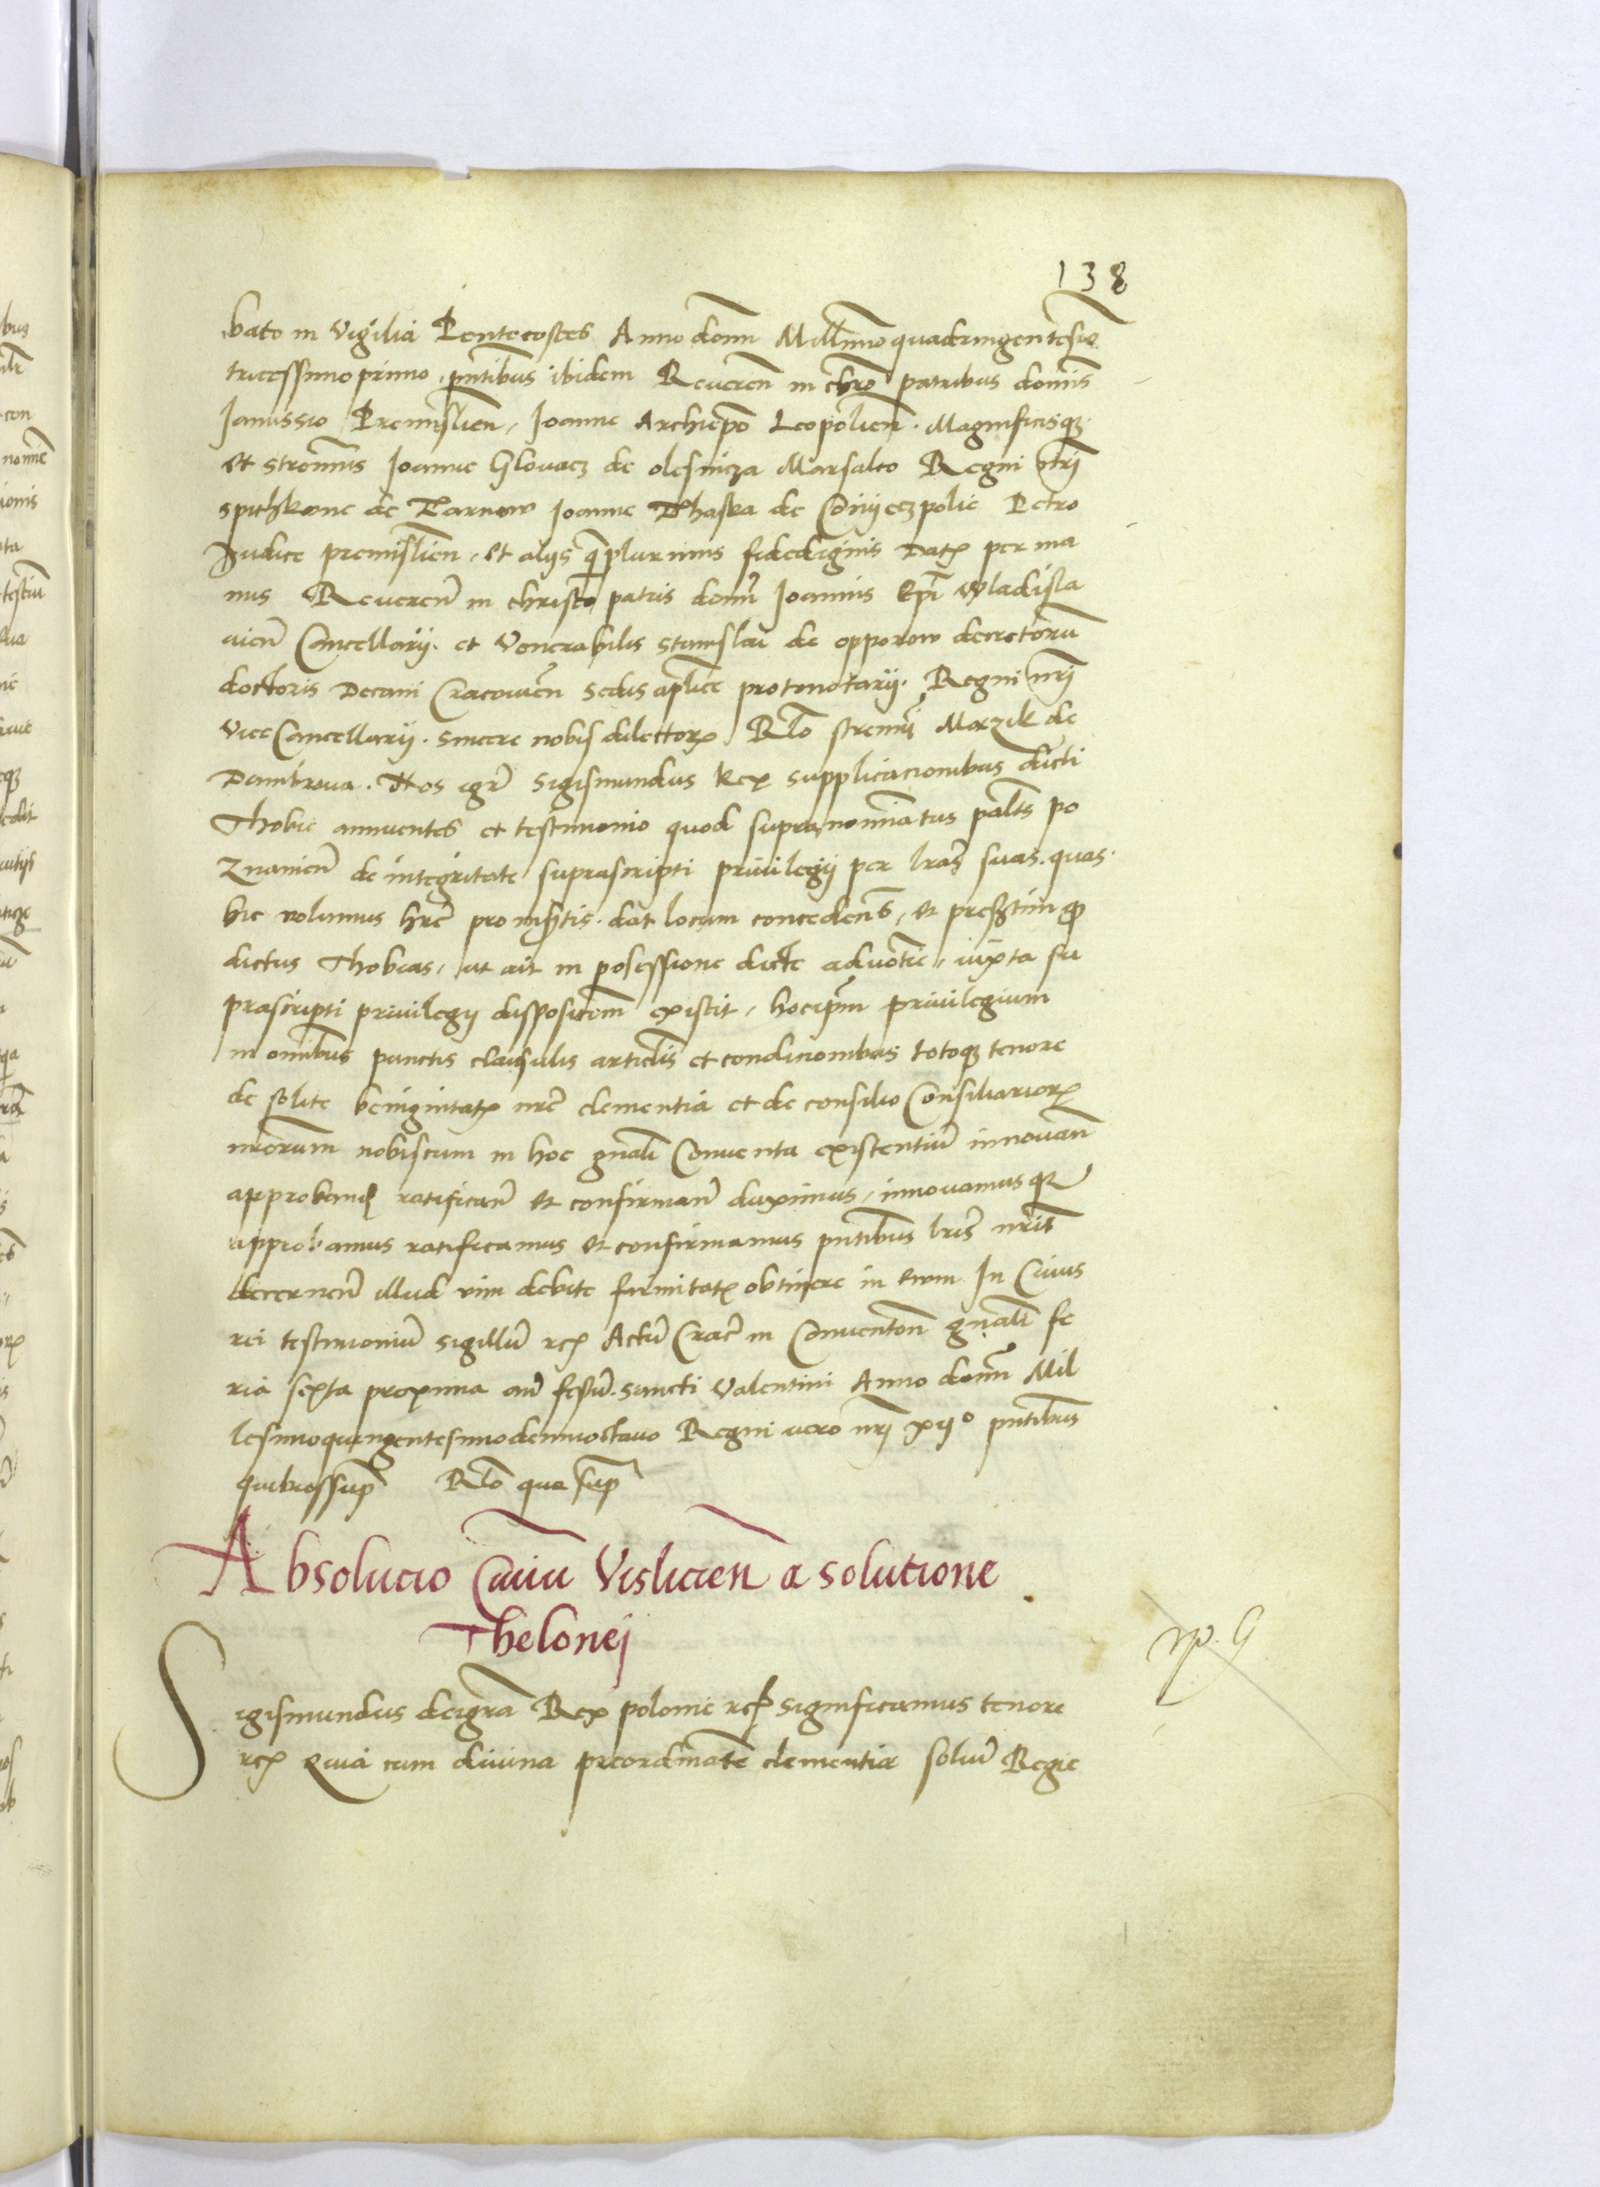 138
bato in vigilia Pentecostes Anno domi Millimo quadringentesio
tricessimo primo, pntibus ibidem Reveren in chro patribus domis
Janussio Premislien, Joanne Archiepo Leopolien. Magnificisq
et strennis Joanne Glovacz de olesnicza Marsalco Regni nri
spithkone de Tarnow Joanne Thaska de Conyeczpolie Petro
Judice premislien, et alijs qplurimis fidedignis Dat per ma
nus Reveren in christo patris domi Joannis Epi wladisla
vien Cancellarij. et Venerabilis stanislai de opporow decretoru
doctoris Decani Cracovien sedis aplice protonotarij. Regni nri
viceCancellarij. sincere nobis dilector Rlo strenui Marzik de
Dambrova. Nos igr Sigismundus Rex supplicacionibus dicti
Thobie annuentes et testimonio quod supranominatus palts po
znanien de integritate suprascripti privilegij per lras suas. quas
hic volumus hre pro insertis. dat locum conceden, et presertim q
dictus Thobias, ut ait in posessione dicte advotie, iuxta su
prascripti privilegij dispositoem existit, hocipm privilegium
in omibus punctis clausulis articlis et condicionibus totoq tenore
de solite benignitat nre clementia et de consilio Consiliarior
nrorum nobiscum in hoc gnali Conventa existentiu innovan
approband ratifican et confirman duximus, innovamusq
approbamus ratificamus et confirmamus pntibus lris nris
decernen illud vim debite firmitat obtinere in evum In Cuius
rei testimoniu sigillu rc Actu Crac in Conventon gnali fe
ria sexta proxima an festu sancti Valentini Anno domi Mil
lesimoquingentesimodecimooctavo Regni vero nri xijo pntibus
quibus supr Rlo que supr
Absolucio Civiu Vislicien a solutione
Thelonej
Sigismundus deigra Rex polonie rc significamus tenore
rc Quia cum divina preordinate clementia soliu Regie